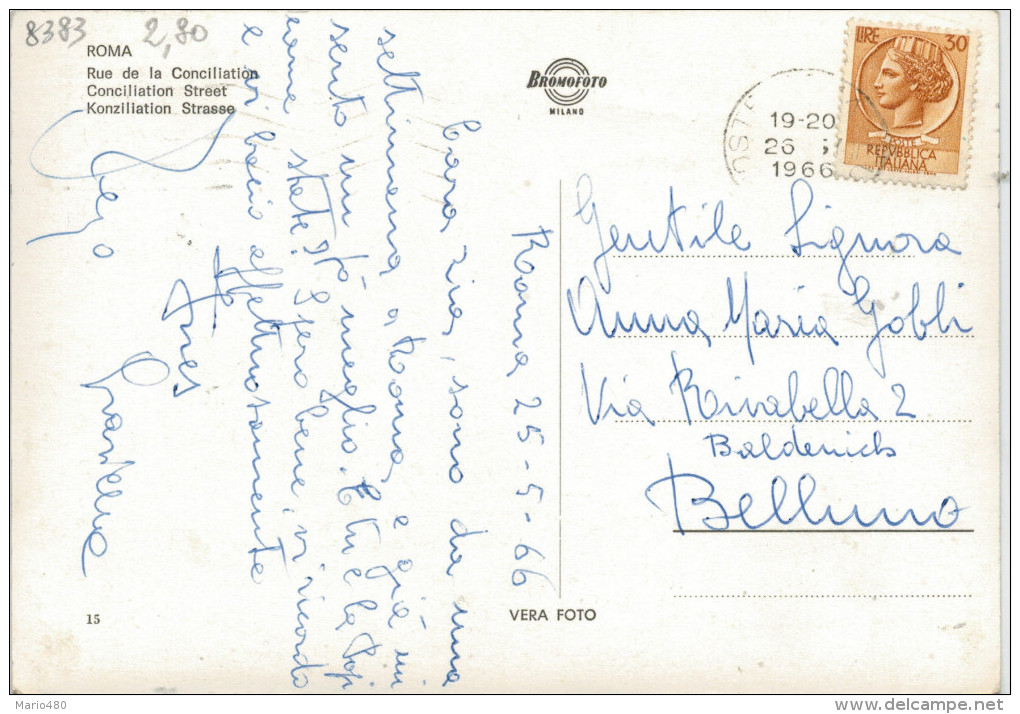 8383 2,80
ROMA
Rue de la Conciliation
Conciliation Street
Konziliation Strasse
BROMOFOTO
MILANO
LIRE 30
POSTE
REPVBBLICA
ITALIANA
19-20
26
1966
Roma 25-5-66
Cara zia, sono da una
settimana a Roma, e già mi
sento un pò meglio. E tu e la Popi
come state? Spero bene; vi ricordo
e vi bacio affettuosamente
Ines
Gentile Signora
Anna Maria Gobbi
Via Rivabella 2
Baldenich
Belluno
15
VERA FOTO
Mario480